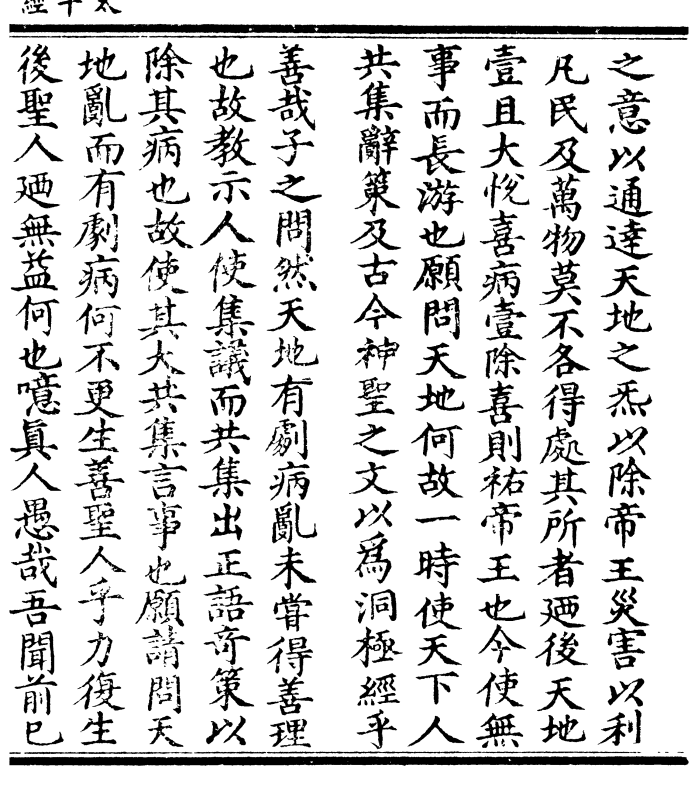 太平經
之意以通達天地之炁以除帝王災害以利
凡民及萬物莫不各得處其所者廼後天地
壹且大悅喜病壹除喜則祐帝王也今使無
事而長游也願問天地何故一時使天下人
共集辭策及古今神聖之文以爲洞極經乎
善哉子之問然天地有劇病亂未嘗得善理
也故教示人使集議而共集出正語奇策以
除其病也故使其大共集言事也願請問天
地亂而有劇病何不更生善聖人乎力復生
後聖人廼無益何也噫眞人愚哉吾聞前已